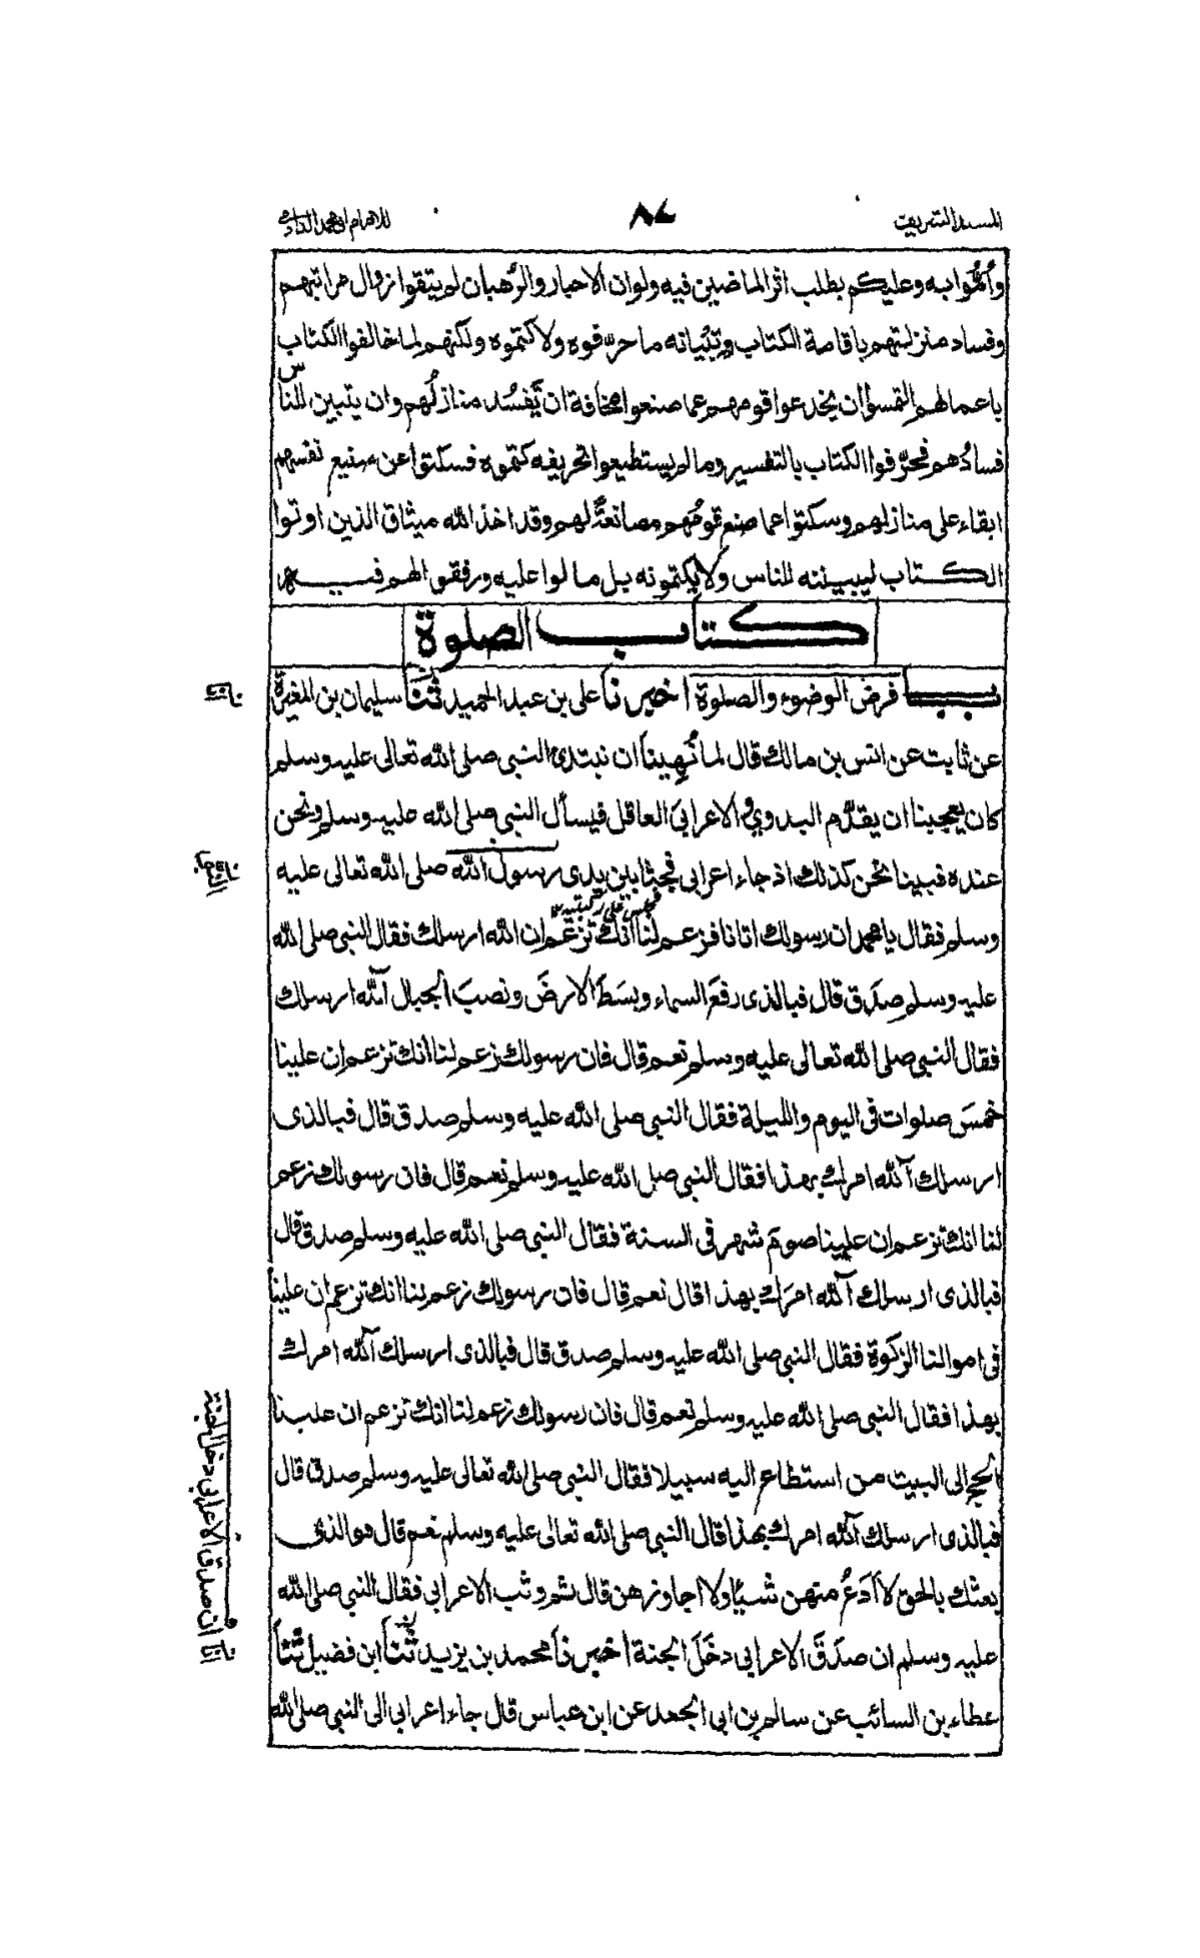 المسند الشريف
٨٤
للامام ابى محمد الدارمى
وأتمّوا به وعليكم بطلب اثر الماضين فيه ولوان الاحبار والرُّهبان لم يتقوا زوال مراتبهم
وفساد منزلتهم باقامة الكتاب وتِبْيانه ما حرّفوه ولا كتموه ولكنهم لما خالفوا الكتاب
باعمالهم التمسوا ان يخدعوا قومهم عما صنعوا مخافة ان تَفسُد منازلُهم وان يتبين للناس
فسادُهم فحرّفوا الكتاب بالتفسير وما لم يستطيعوا تحريفه كتموه فسكتوا عن صنيع نفسهم
ابقاء على منازلهم وسكتوا عما صنع قومُهم مصانعةً لهم وقد اخذ الله ميثاق الذين اوتوا
الكتاب ليبيننه للناس ولا يكتمونه بل مالوا عليه ورفقوا لهم فيه
كتاب الصلوة
باب فرض الوضوء والصلوة اخبرنا على بن عبد الحميد ثنا سليمان بن المغيرة
عن ثابت عن انس بن مالك قال لما نُهِينا ان نبتدئ النبى صلى الله تعالى عليه وسلم
كان يعجبنا ان يقدُم البدوي والاعرابى العاقل فيسأل النبى صلى الله عليه وسلم ونحن
عنده فبينا نحن كذلك اذ جاء اعرابى فجثا بين يدى رسول الله صلى الله تعالى عليه
فجلس على ركبتيه
وسلم فقال يا محمد ان رسولك اتانا فزعم لنا انك تزعم ان الله ارسلك فقال النبى صلى الله
عليه وسلم صدَق قال فبالذى رفعَ السماء وبسَطَ الارضَ ونصبَ الجبال آلله ارسلك
فقال النبى صلى الله تعالى عليه وسلم نعم قال فان رسولك زعم لنا انك تزعم ان علينا
خمسَ صلوات فى اليوم والليلة فقال النبى صلى الله عليه وسلم صدق قال فبالذى
ارسلك آلله امرك بهذا فقال النبى صلى الله عليه وسلم نعم قال فان رسولك زعم
لنا انك تزعم ان علينا صومَ شهر فى السنة فقال النبى صلى الله عليه وسلم صدق قال
فبالذى ارسلك آلله امرَك بهذا قال نعم قال فان رسولك زعم لنا انك تزعم ان علينا
فى اموالنا الزكوة فقال النبى صلى الله عليه وسلم صدق قال فبالذى ارسلك آلله امرك
بهذا فقال النبى صلى الله عليه وسلم نعم قال فان رسولك زعم لنا انك تزعم ان علينا
الحج الى البيت من استطاع اليه سبيلا فقال النبى صلى الله تعالى عليه وسلم صدق قال
فبالذى ارسلك آلله امرك بهذا قال النبى صلى الله تعالى عليه وسلم نعم قال فوالذى
بعثك بالحق لا اَدَعُ منهن شيئا ولا اجاوزهن قال ثم وثب الاعرابى فقال النبى صلى الله
عليه وسلم ان صدَقَ الاعرابى دخَلَ الجنة اخبرنا محمد بن يزيد ثنا ابن فضيل ثنا
عطاء بن السائب عن سالم بن ابى الجعد عن ابن عباس قال جاء اعرابى الى النبى صلى الله
ان صدق الاعرابى دخل الجنة